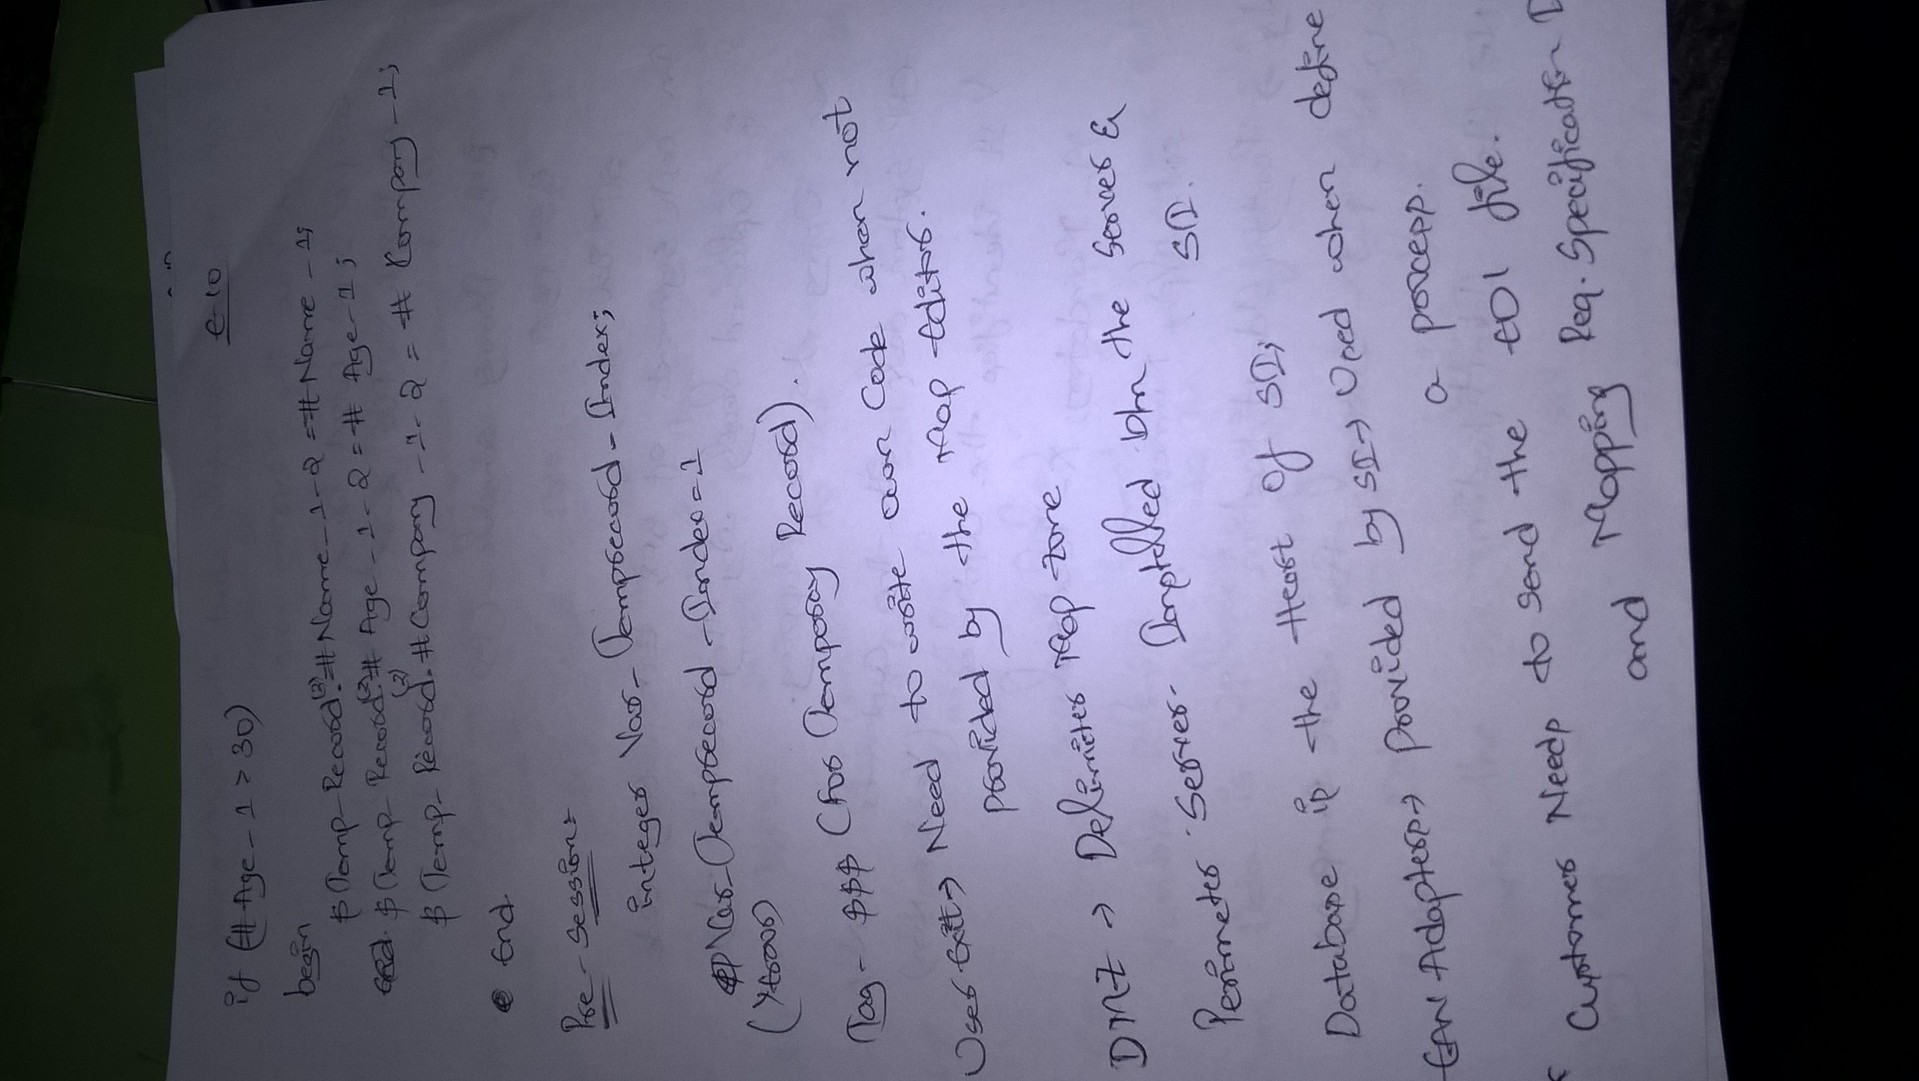 E-10
if (# Age_1 > 30)
begin
$ Temp_Record(2).#Name_1_2 = #Name_1;
$ Temp_Record(2).# Age_1_2 = # Age_1;
$ Temp_Record(2).#Company_1_2 = # Company_1;
End
Pre-Session:-
integer Var_Temprecord_Index;
Var_Temprecord_Index=1
(Xtour)
Tag - $$$ (for Temporary Record).
User Exit → Need to write own Code when not
provided by the Map Editor.
DMZ → Delimiter Map zone
Perimeter Server - Installed btn the Server &
SI.
Database is the Heart of SI;
EAN Adapters → Provided by SI → Used when define
a process.
Customer Needs to send the EDI file.
and Mapping Req. Specification D